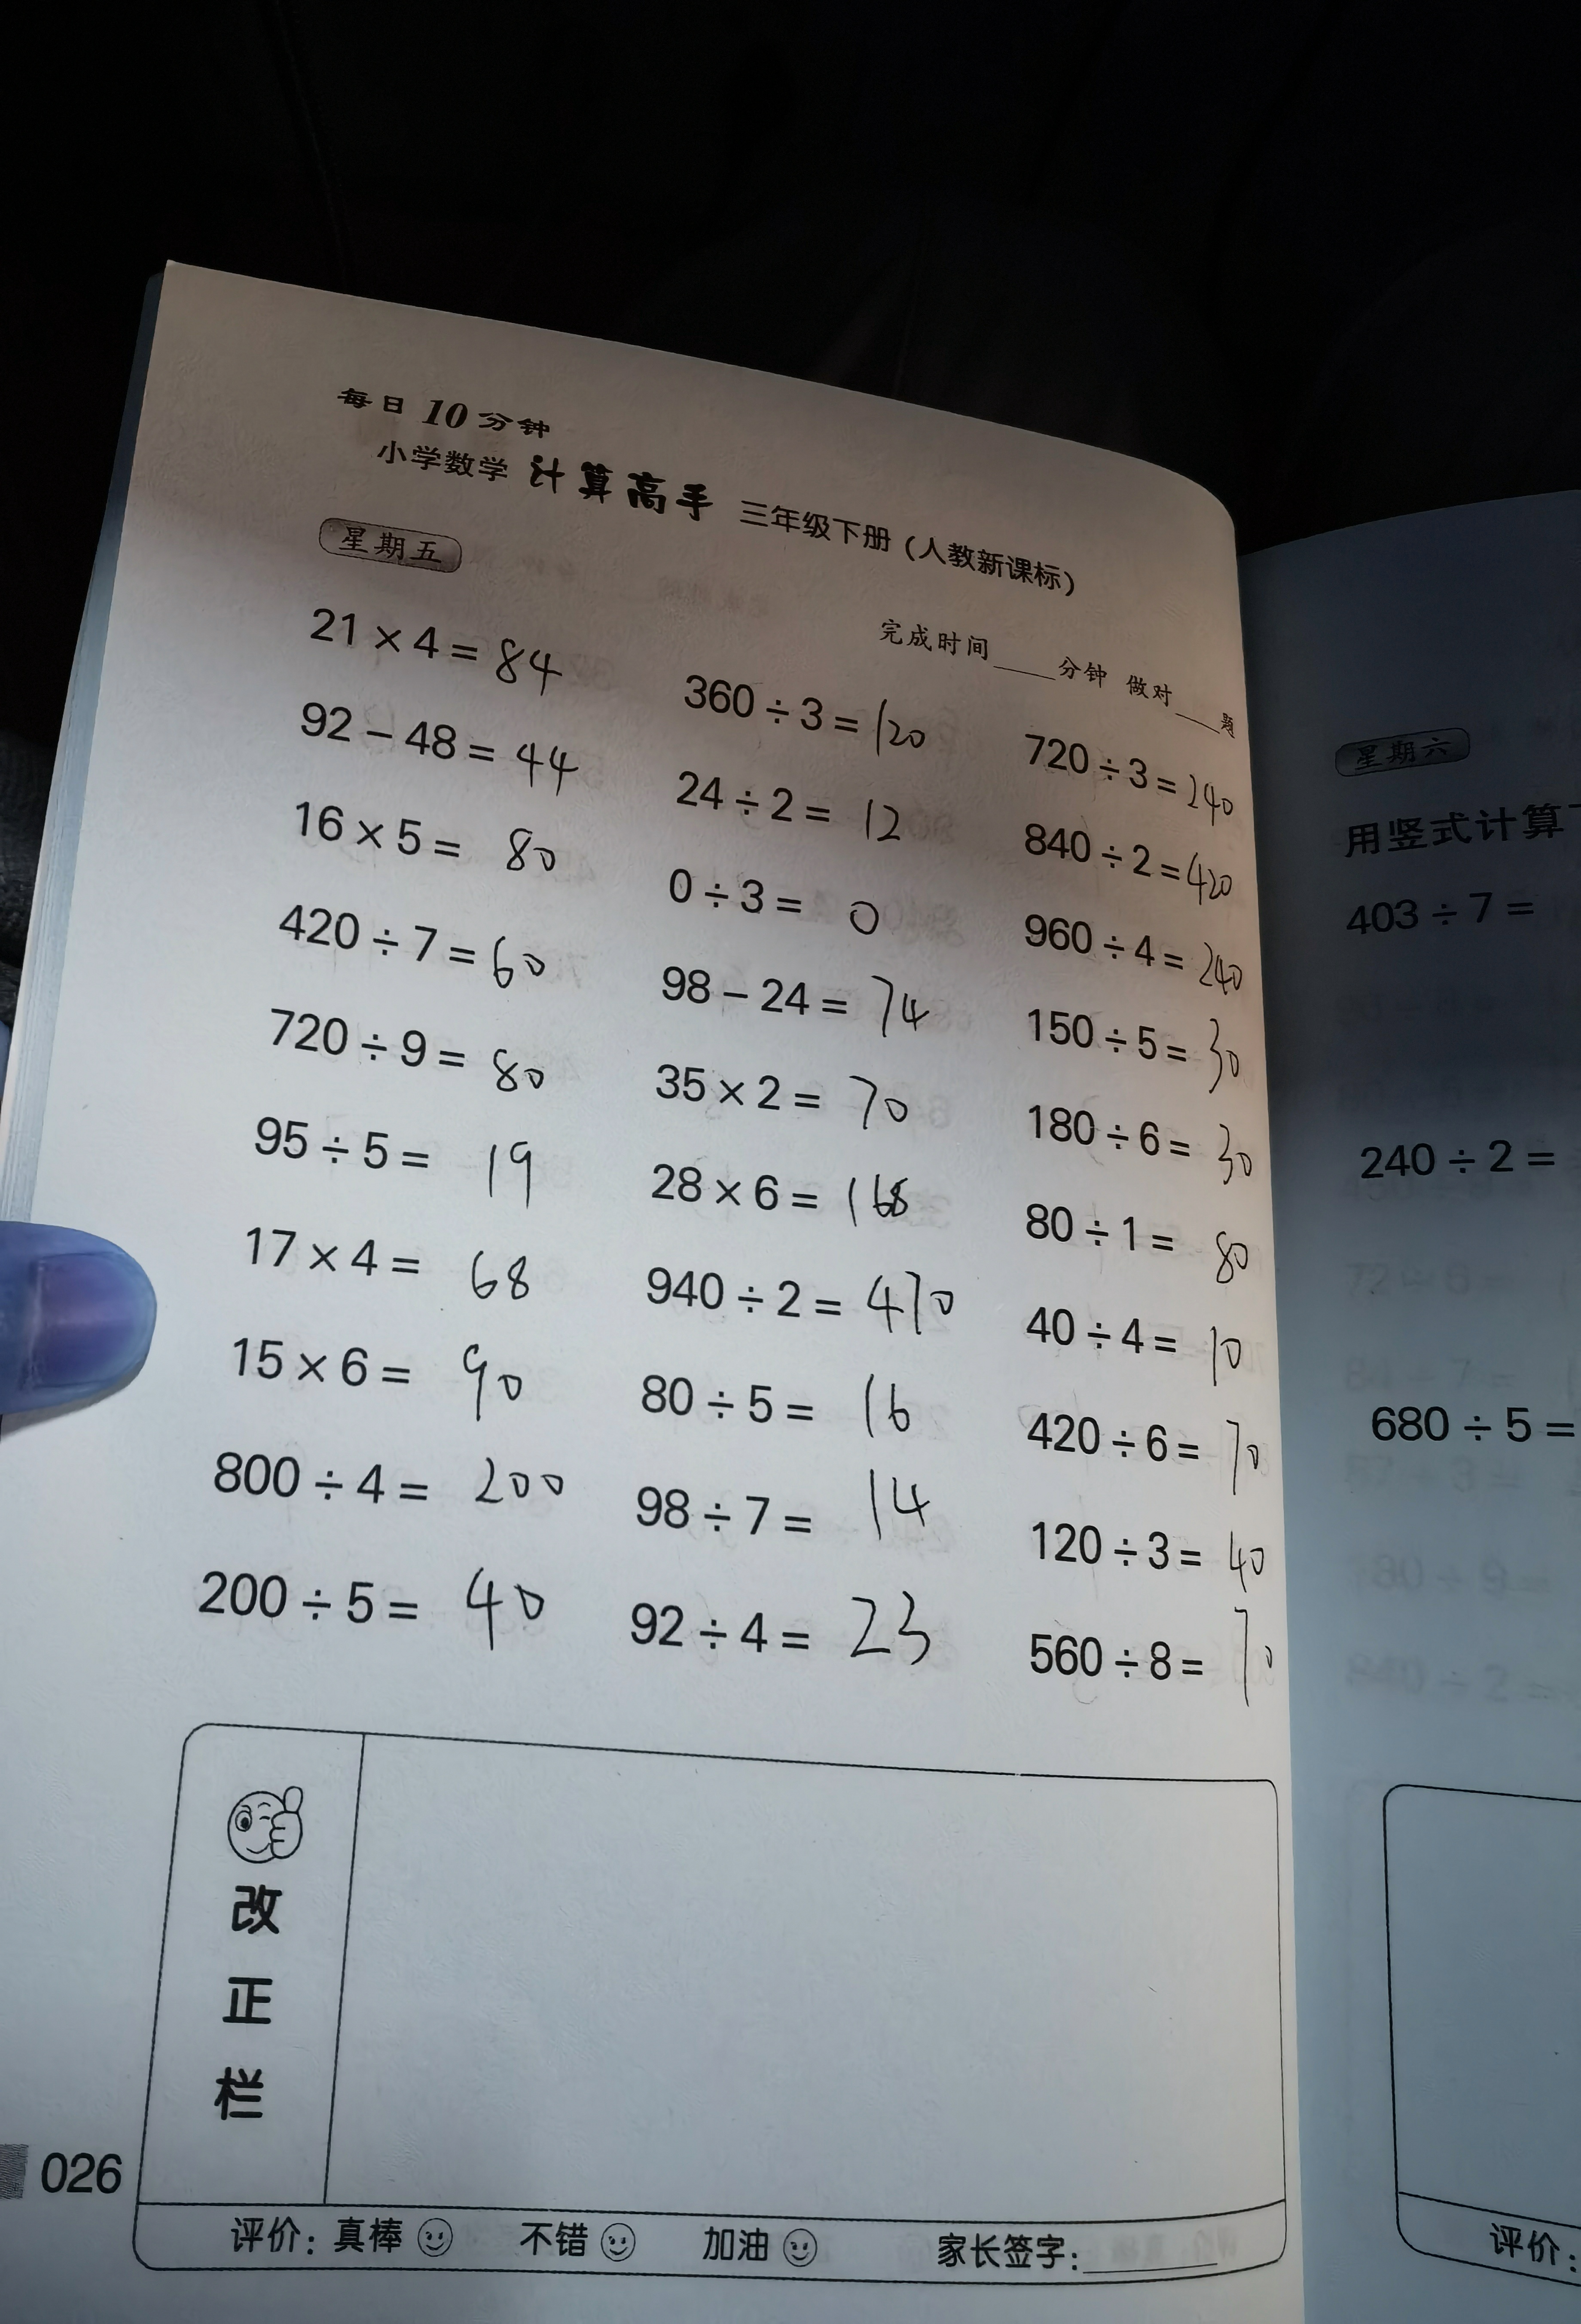 每日10分钟
小学数学 计算高手 三年级下册(人教新课标)
星期五
完成时间____分钟 做对____题
21×4=84
92-48=44
16×5=80
420÷7=60
720÷9=80
95÷5=19
17×4=68
15×6=90
800÷4=200
200÷5=40
360÷3=120
24÷2=12
0÷3=0
98-24=74
35×2=70
28×6=168
940÷2=470
80÷5=16
98÷7=14
92÷4=23
720÷3=240
840÷2=420
960÷4=240
150÷5=30
180÷6=30
80÷1=80
40÷4=10
420÷6=70
120÷3=40
560÷8=70
改
正
栏
评价:真棒 不错 加油 家长签字:________
026
星期六
用竖式计算
403÷7=
240÷2=
680÷5=
评价: